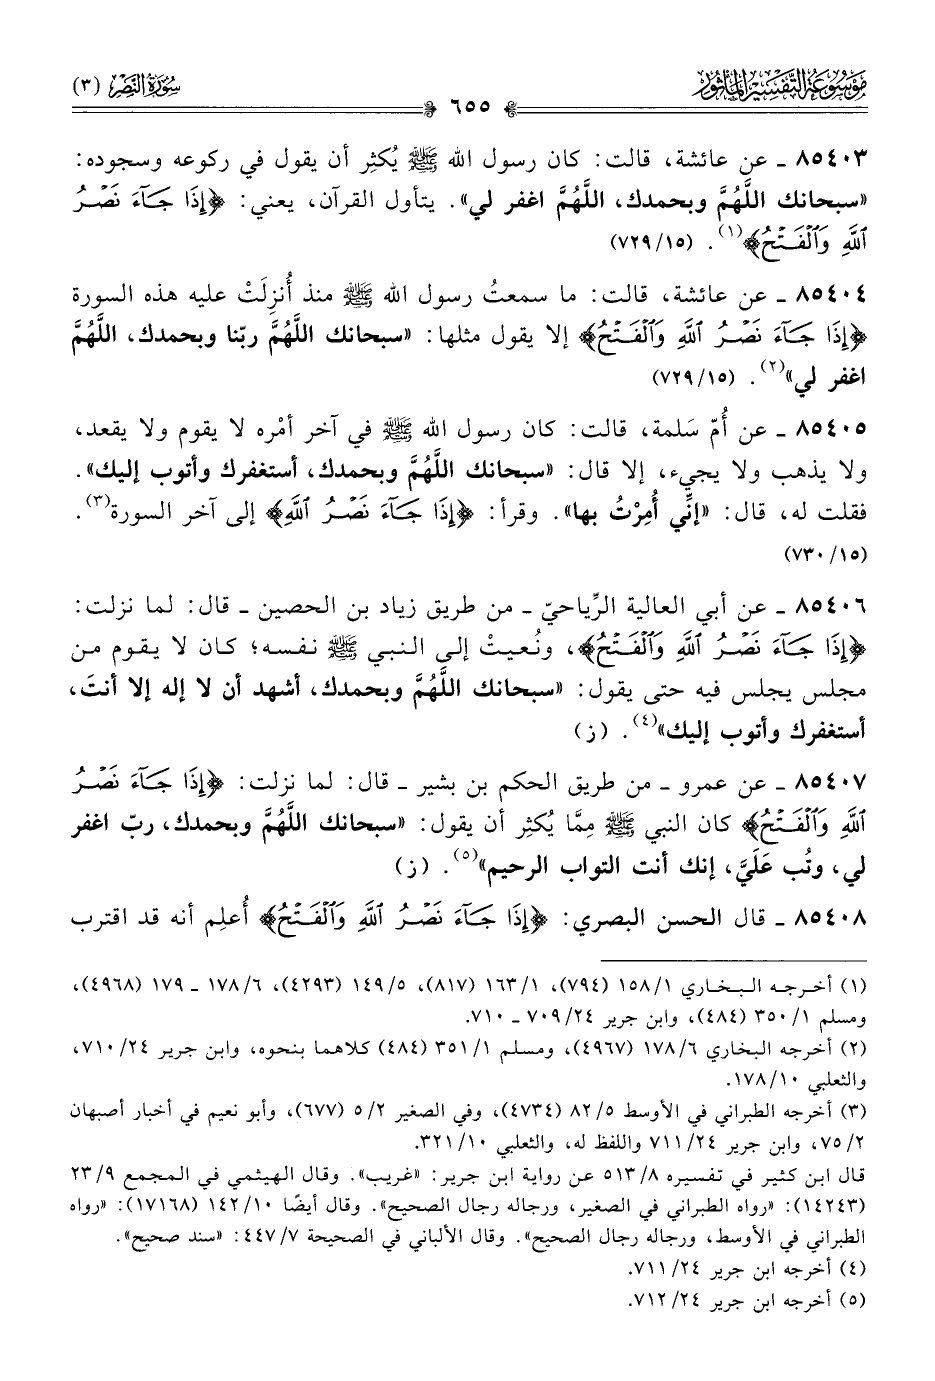 مَوْسُوعَة التَّفْسِير المَأْثُور
سُورَةُ النَّصْر (٣)
٦٥٥
٨٥٤٠٣ ـ عن عائشة، قالت: كان رسول الله ﷺ يُكثِر أن يقول في ركوعه وسجوده:
«سبحانك اللَّهُمَّ وبحمدك، اللَّهُمَّ اغفر لي». يتأول القرآن، يعني: ﴿إِذَا جَآءَ نَصْرُ
ٱللَّهِ وَٱلْفَتْحُ﴾(١). (٧٢٩/١٥)
٨٥٤٠٤ ـ عن عائشة، قالت: ما سمعتُ رسول الله ﷺ منذ أُنزِلَتْ عليه هذه السورة
﴿إِذَا جَآءَ نَصْرُ ٱللَّهِ وَٱلْفَتْحُ﴾ إلا يقول مثلها: «سبحانك اللَّهُمَّ ربّنا وبحمدك، اللَّهُمَّ
اغفر لي»(٢). (٧٢٩/١٥)
٨٥٤٠٥ ـ عن أُمّ سَلمة، قالت: كان رسول الله ﷺ في آخر أمْره لا يقوم ولا يقعد،
ولا يذهب ولا يجيء، إلا قال: «سبحانك اللَّهُمَّ وبحمدك، أستغفرك وأتوب إليك».
فقلت له، قال: «إنِّي أُمِرْتُ بها». وقرأ: ﴿إِذَا جَآءَ نَصْرُ ٱللَّهِ﴾ إلى آخر السورة(٣).
(٧٣٠/١٥)
٨٥٤٠٦ ـ عن أبي العالية الرِّياحيّ ـ من طريق زياد بن الحصين ـ قال: لما نزلت:
﴿إِذَا جَآءَ نَصْرُ ٱللَّهِ وَٱلْفَتْحُ﴾، ونُعيتْ إلى النبي ﷺ نفسه؛ كان لا يقوم من
مجلس يجلس فيه حتى يقول: «سبحانك اللَّهُمَّ وبحمدك، أشهد أن لا إله إلا أنتَ،
أستغفرك وأتوب إليك»(٤). (ز)
٨٥٤٠٧ ـ عن عمرو ـ من طريق الحكم بن بشير ـ قال: لما نزلت: ﴿إِذَا جَآءَ نَصْرُ
ٱللَّهِ وَٱلْفَتْحُ﴾ كان النبي ﷺ مِمَّا يُكثِر أن يقول: «سبحانك اللَّهُمَّ وبحمدك، ربّ اغفر
لي، وتُب عَلَيَّ، إنك أنت التواب الرحيم»(٥). (ز)
٨٥٤٠٨ ـ قال الحسن البصري: ﴿إِذَا جَآءَ نَصْرُ ٱللَّهِ وَٱلْفَتْحُ﴾ أُعلِم أنه قد اقترب
(١) أخرجه البخاري ١٥٨/١ (٧٩٤)، ١٦٣/١ (٨١٧)، ١٤٩/٥ (٤٢٩٣)، ١٧٨/٦ ـ ١٧٩ (٤٩٦٨)،
ومسلم ٣٥٠/١ (٤٨٤)، وابن جرير ٧٠٩/٢٤ ـ ٧١٠.
(٢) أخرجه البخاري ١٧٨/٦ (٤٩٦٧)، ومسلم ٣٥١/١ (٤٨٤) كلاهما بنحوه، وابن جرير ٧١٠/٢٤،
والثعلبي ١٧٨/١٠.
(٣) أخرجه الطبراني في الأوسط ٨٢/٥ (٤٧٣٤)، وفي الصغير ٥/٢ (٦٧٧)، وأبو نعيم في أخبار أصبهان
٧٥/٢، وابن جرير ٧١١/٢٤ واللفظ له، والثعلبي ٣٢١/١٠.
قال ابن كثير في تفسيره ٥١٣/٨ عن رواية ابن جرير: «غريب». وقال الهيثمي في المجمع ٢٣/٩
(١٤٢٤٣): «رواه الطبراني في الصغير، ورجاله رجال الصحيح». وقال أيضًا ١٤٢/١٠ (١٧١٦٨): «رواه
الطبراني في الأوسط، ورجاله رجال الصحيح». وقال الألباني في الصحيحة ٤٤٧/٧: «سند صحيح».
(٤) أخرجه ابن جرير ٧١١/٢٤.
(٥) أخرجه ابن جرير ٧١٢/٢٤.